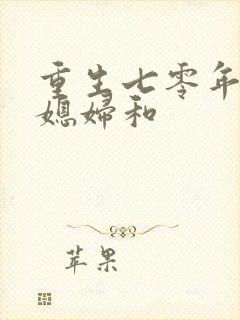 重生七零年
媳妇和
苹果